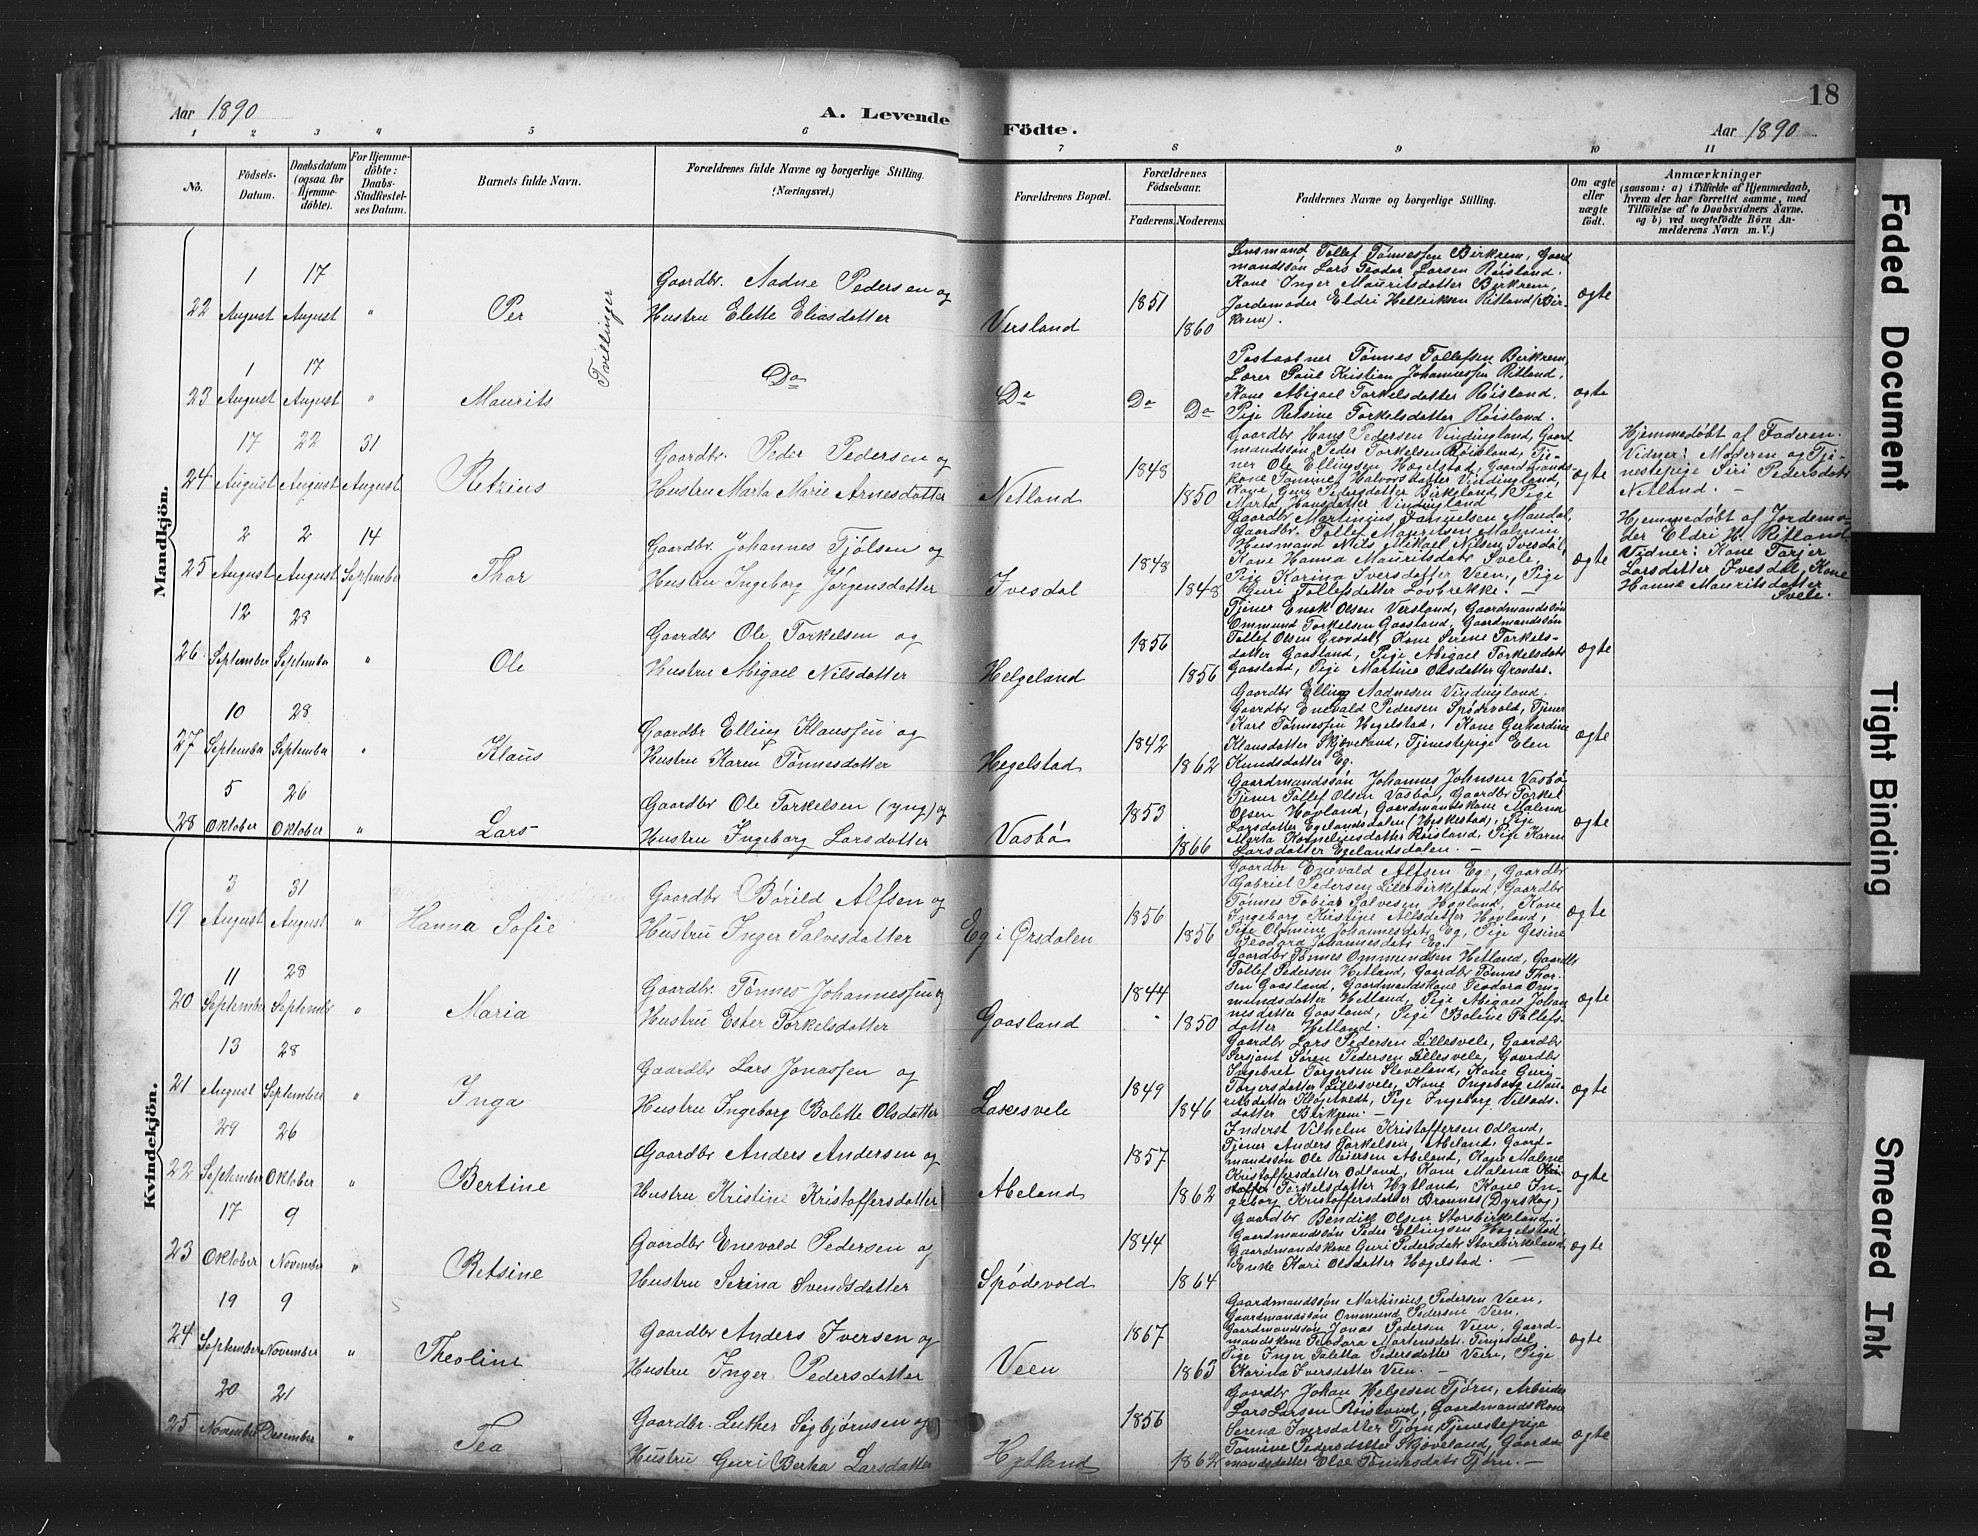 18
Aar 1890
A. Levende Födte.
Aar 1890
1 2 3 4 5 6 7 8 9 10 11
No.
Födsels-Datum.
Daabsdatum (ogsaa for Hjemme-döbte).
For Hjemme-döbte: Daabs-Stadfæstel-ses Datum.
Barnets fulde Navn.
Forældrenes fulde Navne og borgerlige Stilling. (Næringsvei.)
Forældrenes Bopæl.
Forældrenes Födselsaar.
Faderens. Moderens.
Faddernes Navne og borgerlige Stilling.
Om ægte eller uægte födt.
Anmærkninger
(saasom: a) i Tilfælde af Hjemmedaab, hvem der har forrettet samme, med Tilföielse af to Daabsvidners Navne. og b) ved uægtefödte Börn An-melderens Navn m. V.)
Mandkjön.
22
1 August
17 August
"
Per
Tvillinger
Gaardbr. Aadne Pedersen og
Hustru Elette Eliasdatter
Versland
1851
1860
Lensmand Tollef Tönnessen Birkrem, Gaard
mandssön Lars Teodor Larsen Röisland.
Kone Inger Mauritsdatter Birkrem,
Jordemoder Eldri Helleiksen Ritland (Bir-
krem).
ægte
23
1 August
17 August
"
Maurits
Do
Do
Do
Do
Postaabner Tönnes Tollefsen Birkrem,
Lærer Paul Kristian Johannessen Ritland,
Kone Abigael Torkelsdatter Röisland.
Pige Retsine Torkelsdatter Röisland.
ægte
24
17 August
22 August
31 August
Retzius
Gaardbr. Peder Pedersen og
Hustru Marta Marie Arnesdatter
Netland
1848
1850
Gaardbr Hans Pedersen Vindingland, Gaard
mandssön Peder Torkelsen Röisland, Tje-
ner Ole Ellingsen Hægelstad, Gaardmands
kone Tomine Halvorsdatter Vindingland,
Kone Guri Pedersdatter Birkeland, Pige
Marta Hansdatter Vindingland
ægte
Hjemmedöbt af Faderen.
Vidner: Moderen og Tje-
nestepige Siri Pedersdatr
Netland. —
25
2 August
2 August
14 September
Thor
Gaardbr. Johannes Tjölsen og
Hustru Ingeborg Jörgensdatter
Ivesdal
1848
1848
Gaardbr Martinius Samuelsen Mandal,
Gaardbr. Tollef Mauritsen Malmin,
Husmand Nils Mikael Nilsen Ivesdal,
Kone Hanna Mauritsdatr Svele,
Pige Karina Iversdatter Veen, Pige
Guri Tollefsdatter Lovbrekke. —
ægte
Hjemmedöbt af Jordemo-
der Eldri H. Ritland
Vidner: Kone Tarjer
Larsdatter Ivesdal, Kone
Hanne Mauritsdatter
Svele.
26
12 September
28 September
"
Ole
Gaardbr Ole Torkelsen og
Hustru Abigael Nilsdatter
Helgeland
1856
1856
Tjener Enok Olsen Versland, Gaardmandssön
Ommund Torkelsen Gaasland, Gaardmandssön
Tollef Olsen Gravdal, Kone Serene Torkels-
datter Gaasland, Pige Abigael Torkelsdatr
Gaasland, Pige Martine Olsdatter Gravdal.
ægte
27
10 September
28 September
"
Klaus
Gaardbr Elling Klaussen og
Hustru Karen Tönnesdatter
Hegelstad
1842
1862
Gaardbr Elling Aadnesen Vindingland.
Gaardbr Enevald Pedersen Spödevold, Tjener
Karl Tönnessen Hegelstad, Kone Gerhardine
Klausdatter Skjæveland, Tjenestepige Elen
Knudsdatter Eg.
ægte
28
5 Oktober
26 Oktober
"
Lars
Gaardbr Ole Torkelsen (yng) og
Hustru Ingeborg Larsdatter
Vasbö
1853
1866
Gaardmandssön Johannes Johnsen Vasbö
Tjener Tollef Olsen Vasbö, Gaardbr Torkel
Olsen Hovland, Gaardmandskone Malena
Larsdatter Egelandsdalen (Heskestad), Pige
Marta Korneliusdatter Röisland, Pige Karen
Larsdatter Egelandsdalen. —
ægte
Kvindekjön.
19
3 August
31 August
"
Hanna Sofie
Gaardbr Börild Alfsen og
Hustru Inger Salvesdatter
Eg i Ørsdalen
1856
1856
Gaardbr Enevald Alfsen Eg, Gaardbr
Gabriel Pedersen Lillebirkeland, Gaardbr
Tönnes Tobias Salvesen Hovland, Kone
Ingeborg Kristine Alsdatter Hovland,
Pige Olomine Johannesdatr Eg, Pige Gesine
Teodora Johannesdatr Eg.
ægte
20
11 September
28 September
"
Maria
Gaardbr. Tönnes Johannessen og
Hustru Ester Torkelsdatter
Gaasland
1844
1850
Gaardbr Tönnes Ommundsen Hetland, Gaardbr
Tollef Pedersen Hetland, Gaardbr Tönnes Thor-
sen Gaasland, Gaardmandskone Teodora Om-
mundsdatter Hetland, Pige Abigael Johan
nesdatter Gaasland, Pige Bolene Tollefs-
datter Hetland.
ægte
21
13 August
28 September
"
Inga
Gaardbr Lars Jonassen og
Hustru Ingeborg Bolette Olsdatter
Laxesvele
1849
1846
Gaardbr Lars Pedersen Lillesvele, Gaardbr
Sersjant Sören Pedersen Lillesvele, Gaardbr
Ingebret Torgersen Sleveland, Kone Guri
Torgersdatter Lillesvele, Kone Ingeborg Mau-
ritsdatter Klöjetvedt, Pige Ingeborg Villads-
datter Birkrem. —
ægte
22
29 September
26 Oktober
"
Bertine
Gaardbr Anders Andersen og
Hustru Kristine Kristoffersdatter
Abeland
1857
1862
Inderst Vilhelm Kristoffersen Odland,
Tjener Anders Torkelsen, Abeland, Gaard-
mandssön Ole Reiersen Abeland, Kone Malene
Kristoffersdatter Odland, Kone Malena
Torkelsdatter Hytland, Kone In-
geborg Kristoffersdatter Bronnes (Dyrskog)
ægte
23
17 Oktober
9 November
"
Retsine
Gaardbr Enevald Pedersen og
Hustru Serina Svendsdatter
Spödevold
1844
1864
Gaardbr Bendik Olsen Storebirkeland,
Gaardmandssön Peder Ellingsen Hægelstad,
Gaardmandskone Guri Pedersdatr Storebirkeland
Enke Kari Olsdatter Hægelstad. —
ægte
24
19 September
9 November
"
Theoline
Gaardbr Anders Iversen og
Hustru Inger Pedersdatter
Veen
1867
1863
Gaardmandssön Martinius Pedersen Veen,
Gaardmandssön Ommund Pedersen Veen,
Gaardmandssön Jonas Pedersen Veen, Gaard-
mandskone Teodora Mortensdatr Tingesdal
Pige Inger Taletta Pedersdatter Veen, Pige
Karina Iversdatter Veen. —
ægte
25
20 November
21 Desember
"
Tea
Gaardbr. Luther Sigbjörnsen og
Hustru Guri Berta Larsdatter
Hytland
1856
1862
Gaardbr Johan Helgesen Tjörn, Arbeider
Lars Larsen Röislund, Gaardmandskone
Serena Iversdatter Tjörn, Tjenestepige
Tomine Pedersdatter Skjæveland, Gaard
mandsdatter Else Tönnesdatr Tjörn. —
ægte
Faded Document
Tight Binding
Smeared Ink